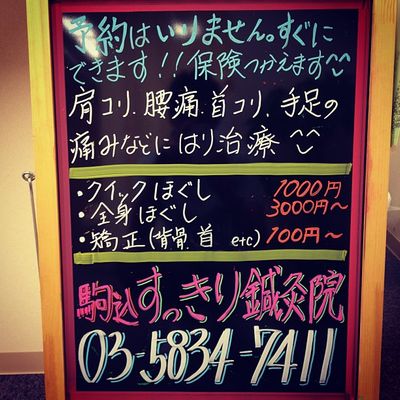 予約はいりません。すぐに
できます!!保険つかえます^^
肩コリ.腰痛.首コリ.手足の
痛みなどにはり治療 ^^
・クイックほぐし 1000円
・全身ほぐし 3000円～
・矯正(背骨.首 etc) 100円～
駒込すっきり鍼灸院
03-5834-7411